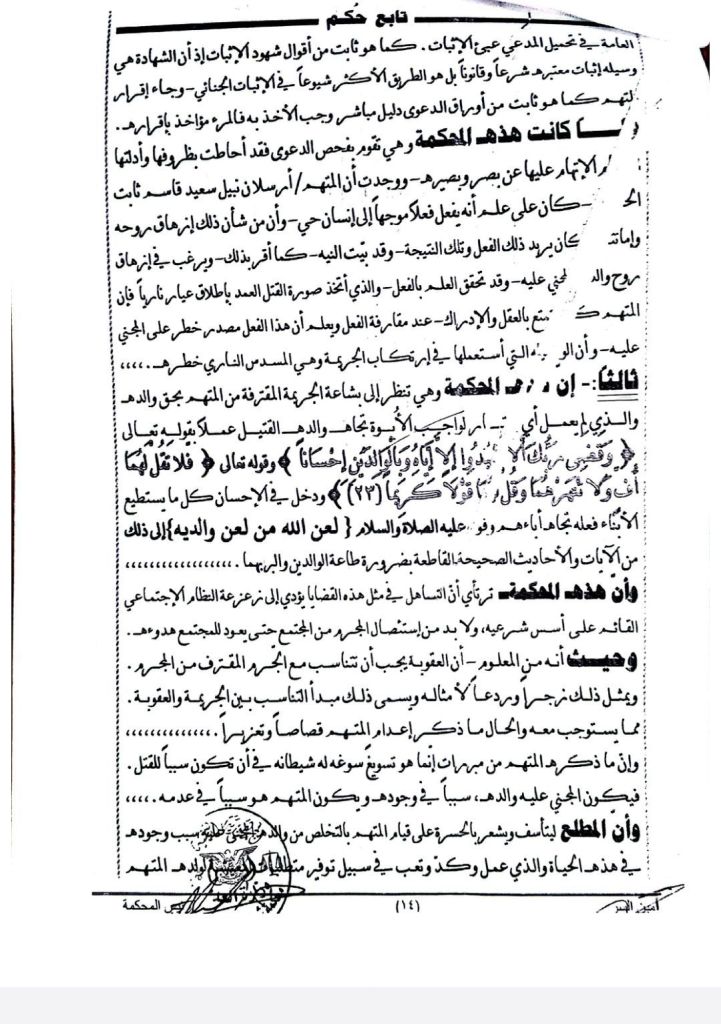 تابع حكم
العامة في تحميل المدعي عبئ الإثبات . كما هو ثابت من أقوال شهود الإثبات إذ أن الشهادة هي
وسيله إثبات معتبره شرعاً وقانوناً بل هو الطريق الأكثر شيوعاً في الإثبات الجنائي – وجاء إقرار
لتهم كما هو ثابت من أوراق الدعوى دليل مباشر وجب الأخذ به فالمرء مؤاخذ بإقراره .
كانت هذه المحكمة وهي تقوم بفحص الدعوى فقد أحاطت بظروفها وأدلتها
الإتهام عليها عن بصر وبصيره – ووجدت أن المتهم / أرسلان نبيل سعيد قاسم ثابت
– كان على علم أنه يفعل فعلاً موجهاً إلى إنسان حي – وأن من شأن ذلك إزهاق روحه
كان يريد ذلك الفعل وتلك النتيجة – وقد بيّت النيه – كما أقر بذلك – ويرغب في إزهاق
روح والد لمجني عليه – وقد تحقق العلم بالفعل – والذي أتخذ صورة القتل العمد بإطلاق عيار نارياً فإن
المتهم بالعقل والإدراك – عند مقارفة الفعل ويعلم أن هذا الفعل مصدر خطر على المجني
عليه – وأن التي أستعملها في إرتكاب الجريمة وهي المسدس الناري خطره ،،،،
ثالثاً :- إن المحكمة وهي تنظر إلى بشاعة الجريمة المقترفة من المتهم بحق والده
والذي لم يعمل أي لواجب الأبوة تجاه والده القتيل عملاً بقوله تعالى
﴿ وَقَضَى رَبُّكَ أَلَّا إِلَّا إِيَّاهُ وَبِالْوَالِدَيْنِ إِحْسَاناً ﴾ وقوله تعالى ﴿ فلا تَقُل لَّهُمَا
أُفٍّ وَلَا تَنْهَرْهُمَا وَقُل قَوْلاً كَرِيماً (٢٣) ﴾ ودخل في الإحسان كل ما يستطيع
الأبناء فعله تجاه أباءهم عليه الصلاة والسلام { لعن الله من لعن والديه } إلى ذلك
من الآيات والأحاديث الصحيحة القاطعة بضرورة طاعة الوالدين والبر بهما ،،،،،،،،،،،،،،،،،،
وأن هذه المحكمة ترتأي أن التساهل في مثل هذه القضايا يؤدي إلى زعزعة النظام الإجتماعي
القائم على أسس شرعيه ، ولا بد من إستئصال المجرم من المجتمع حتى يعود للمجتمع هدوءه .
وحيث أنه من المعلوم – أن العقوبة يجب أن تتناسب مع الجرم المقترف من المجرم .
ويمثل ذلك زجراً وردعاً لأمثاله ويسمى ذلك مبدأ التناسب بين الجريمة والعقوبة .
مما يستوجب معه والحال ما ذكر إعدام المتهم قصاصاً وتعزيراً ،،،،،،،،،،،،،،
وإن ما ذكره المتهم من مبررات إنما هو تسويغ سوغه له شيطانه في أن تكون سبباً للقتل .
فيكون المجني عليه والده ، سبباً في وجوده ويكون المتهم هو سبباً في عدمه ،،،،
وأن المطلع ليتأسف ويشعر بالحسرة على قيام المتهم بالتخلص من والده سبب وجوده
في هذه الحياة والذي عمل وكد وتعب في سبيل توفير لولده المتهم
أمين السر
(١٤)
المحكمة